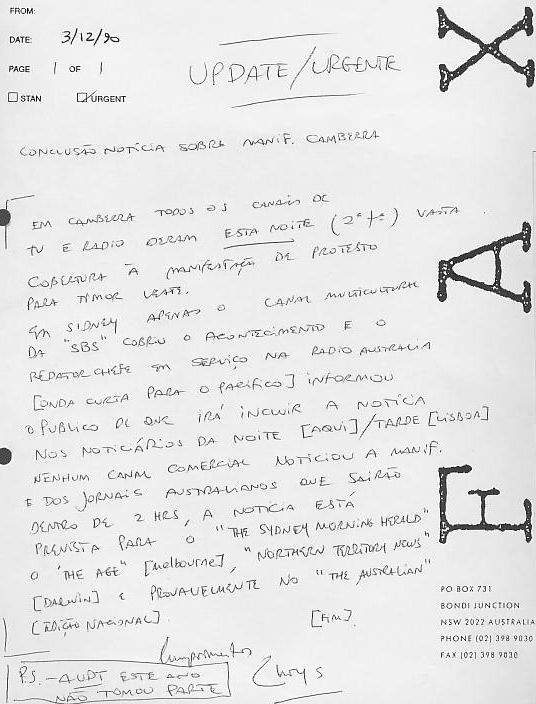 FROM:
DATE: 3/12/90
PAGE 1 OF 1
STAN URGENT
UPDATE/URGENTE
CONCLUSÃO NOTÍCIA SOBRE MANIF. CAMBERRA
EM CAMBERRA TODOS OS CANAIS DE
TV E RADIO DERAM ESTA NOITE (2ª fª) VASTA
COBERTURA À MANIFESTAÇÃO DE PROTESTO
PARA TIMOR LESTE.
EM SIDNEY APENAS O CANAL MULTICULTURAL
DA "SBS" COBRIU O ACONTECIMENTO E O
REDATOR CHEFE EM SERVIÇO NA RADIO AUSTRALIA
[ONDA CURTA PARA O PACÍFICO] INFORMOU
O PUBLICO DE QUE IRÁ INCLUIR A NOTÍCIA
NOS NOTICIÁRIOS DA NOITE [AQUI]/TARDE [LISBOA]
NENHUM CANAL COMERCIAL NOTICIOU A MANIF.
E DOS JORNAIS AUSTRALIANOS QUE SAIRÃO
DENTRO DE 2 HRS, A NOTICIA ESTÁ
PREVISTA PARA O "THE SYDNEY MORNING HERALD"
O 'THE AGE" [Melbourne], "NORTHERN TERRITORY NEWS"
[DARWIN] E PROVAVELMENTE NO "THE AUSTRALIAN"
[EDIÇÃO NACIONAL]. [FIM].
Cumprimentos
P.S. - AUDT ESTE ANO
NÃO TOMOU PARTE
FAX
PO BOX 731
BONDI JUNCTION
NSW 2022 AUSTRALIA
PHONE (02) 398 9030
FAX (02) 398 9030